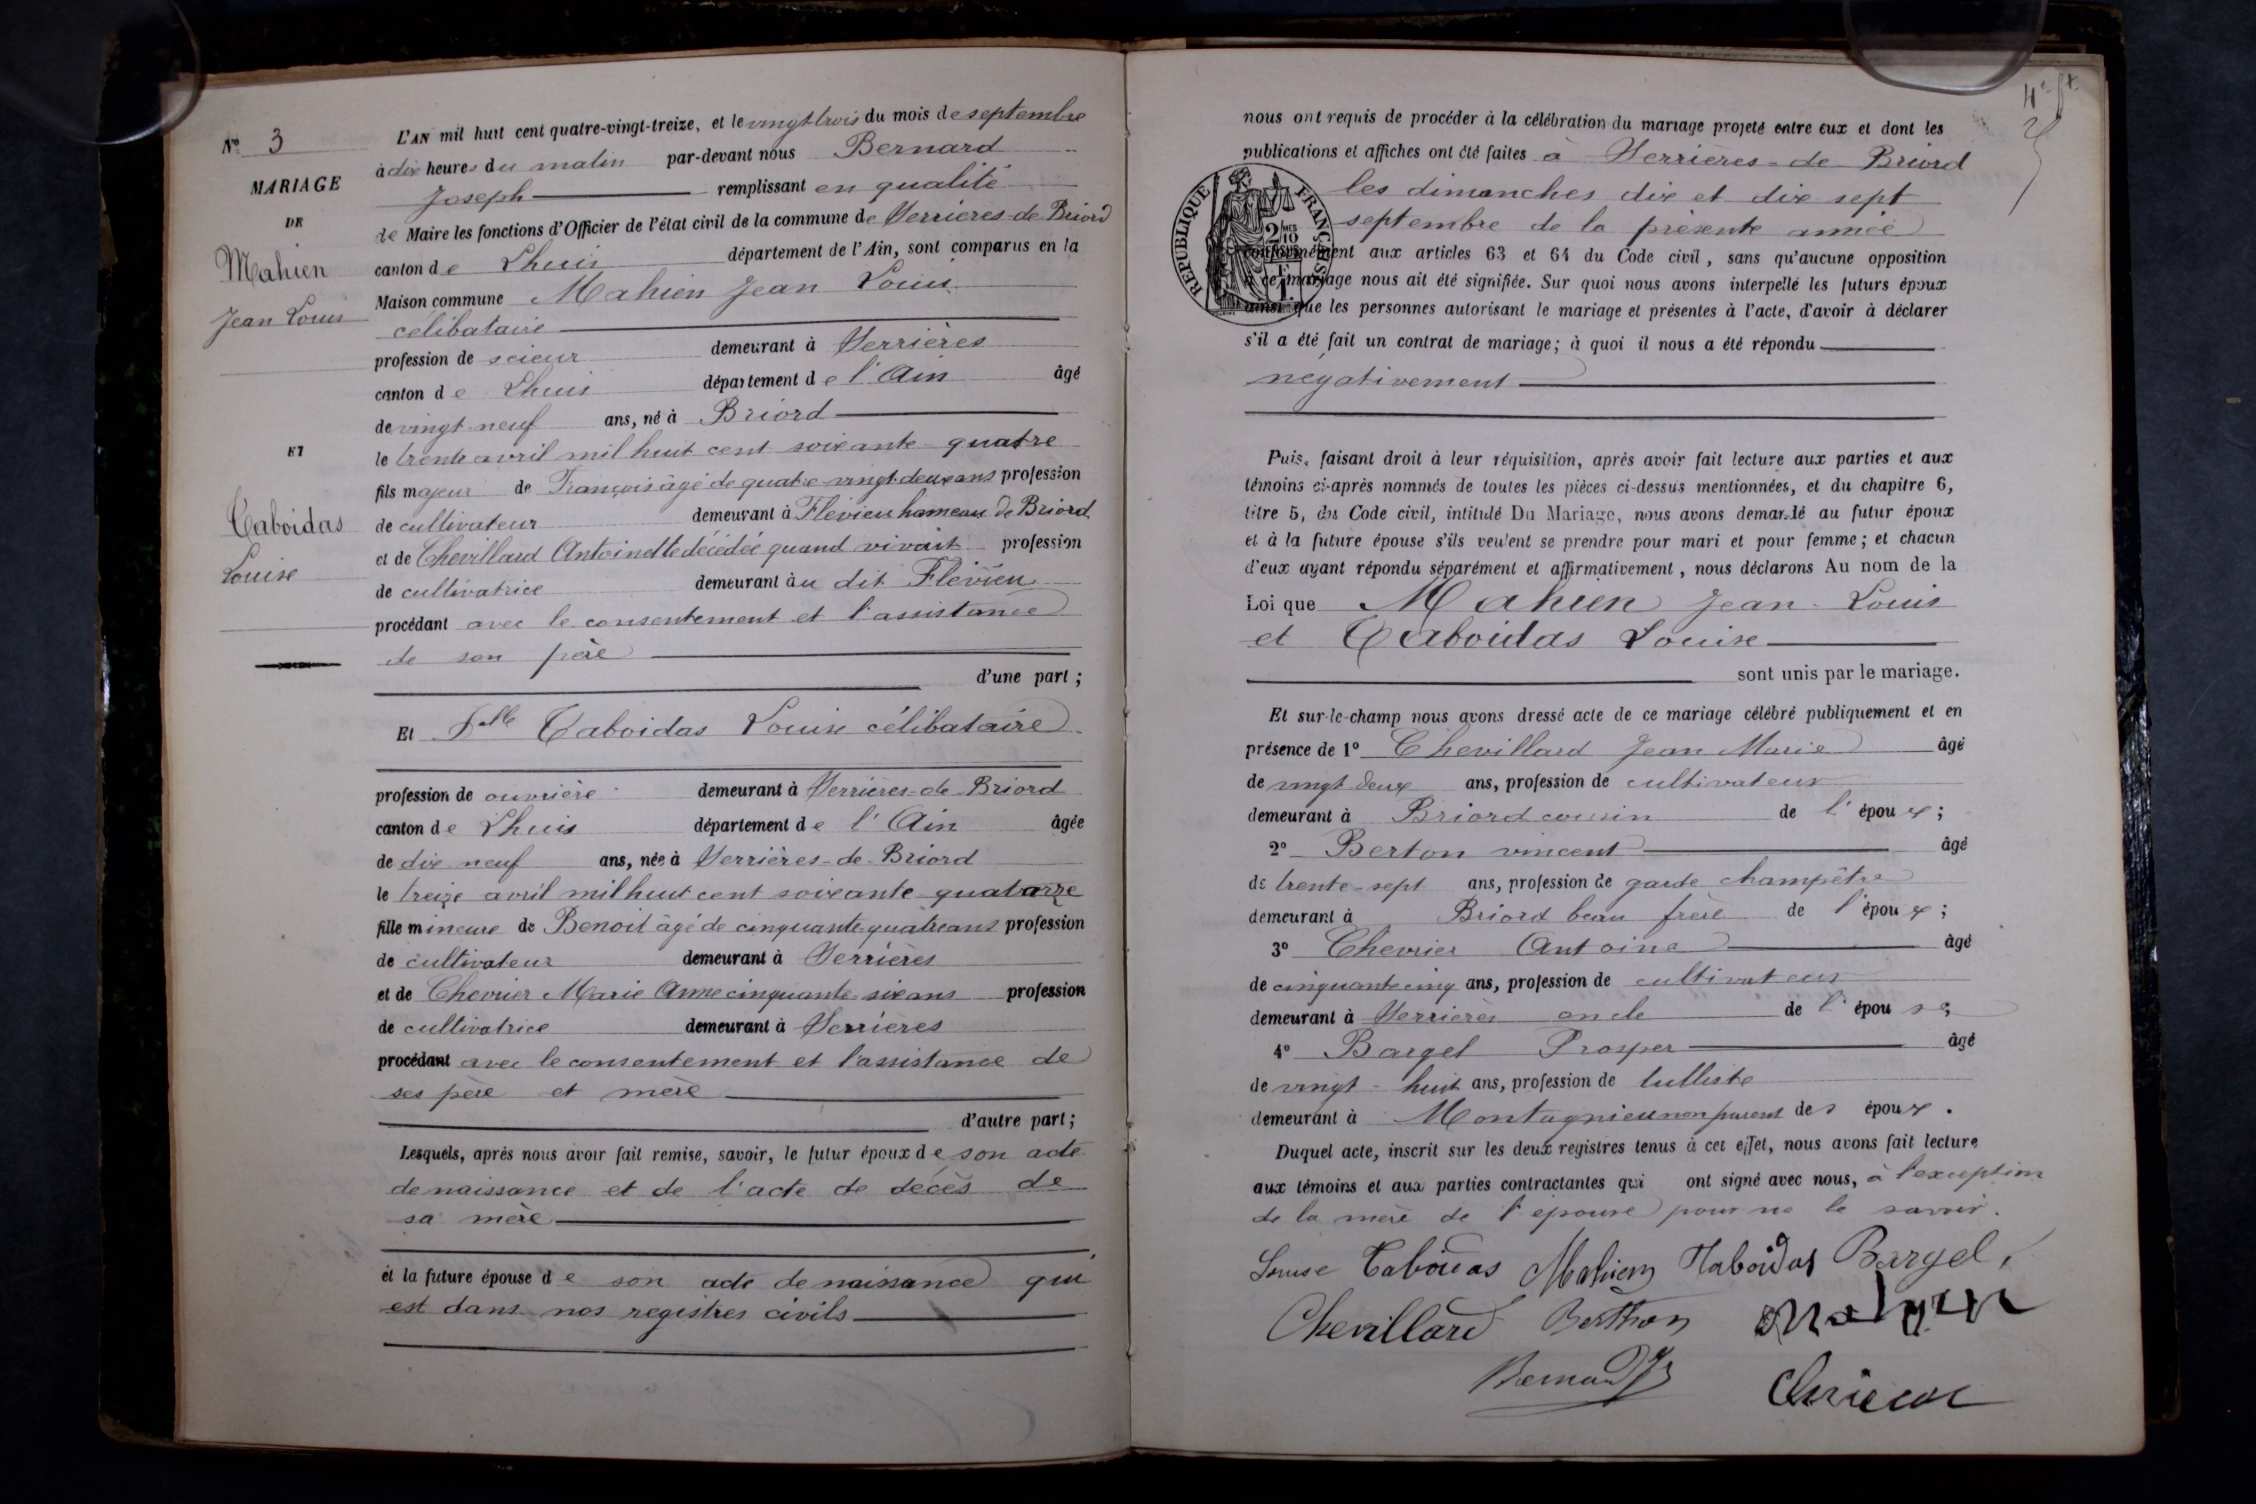 N° 3
MARIAGE
DE
Mahien
Jean Louis
ET
Taboidas
Louise
L'AN mil huit cent quatre-vingt-treize, et le vingt trois du mois de septembre
à dix heures du matin par-devant nous Bernard
Joseph remplissant en qualité
de Maire les fonctions d'Officier de l'état civil de la commune de Serrières-de-Briord
canton de Lhuis département de l'Ain, sont comparus en la
Maison commune Mahien Jean Louis
célibataire
profession de scieur demeurant à Serrières
canton de Lhuis département de l'Ain âgé
de vingt-neuf ans, né à Briord
le trente avril mil huit cent soixante-quatre
fils majeur de François âgé de quatre-vingt-deux ans profession
de cultivateur demeurant à Flévieu hameau de Briord
et de Chevillard Antoinette décédée quand vivait profession
de cultivatrice demeurant au dit Flévieu
procédant avec le consentement et l'assistance
de son père
d'une part ;
Et Delle Taboidas Louise célibataire
profession de ouvrière demeurant à Serrières-de-Briord
canton de Lhuis département de l'Ain âgée
de dix neuf ans, née à Serrières-de-Briord
le treize avril mil huit cent soixante-quatorze
fille mineure de Benoit âgé de cinquante-quatre ans profession
de cultivateur demeurant à Serrières
et de Chevrier Marie Anne cinquante-six ans profession
de cultivatrice demeurant à Serrières
procédant avec le consentement et l'assistance de
ses père et mère
d'autre part ;
Lesquels, après nous avoir fait remise, savoir, le futur époux de son acte
de naissance et de l'acte de décès de
sa mère
et la future épouse de son acte de naissance qui
est dans nos registres civils
4e
nous ont requis de procéder à la célébration du mariage projeté entre eux et dont les
publications et affiches ont été faites à Serrières-de-Briord
les dimanches dix et dix sept
septembre de la présente année
conformément aux articles 63 et 64 du Code civil, sans qu'aucune opposition
à ce mariage nous ait été signifiée. Sur quoi nous avons interpellé les futurs époux
ainsi que les personnes autorisant le mariage et présentes à l'acte, d'avoir à déclarer
s'il a été fait un contrat de mariage ; à quoi il nous a été répondu
négativement
REPUBLIQUE FRANÇAISE
2/10
Puis, faisant droit à leur réquisition, après avoir fait lecture aux parties et aux
témoins ci-après nommés de toutes les pièces ci-dessus mentionnées, et du chapitre 6,
titre 5, du Code civil, intitulé Du Mariage, nous avons demandé au futur époux
et à la future épouse s'ils veulent se prendre pour mari et pour femme ; et chacun
d'eux ayant répondu séparément et affirmativement, nous déclarons Au nom de la
Loi que Mahien Jean-Louis
et Taboidas Louise
sont unis par le mariage.
Et sur-le-champ nous avons dressé acte de ce mariage célébré publiquement et en
présence de 1° Chevillard Jean Marie âgé
de vingt deux ans, profession de cultivateur
demeurant à Briord cousin de l'époux ;
2° Berton vincent âgé
de trente-sept ans, profession de garde champêtre
demeurant à Briord beau frère de l'époux ;
3° Chevrier Antoine âgé
de cinquante cinq ans, profession de cultivateur
demeurant à Serrières oncle de l'épouse ;
4° Bargel Prosper âgé
de vingt-huit ans, profession de tulliste
demeurant à Montagnieu non parent des époux.
Duquel acte, inscrit sur les deux registres tenus à cet effet, nous avons fait lecture
aux témoins et aux parties contractantes qui ont signé avec nous, à l'exception
de la mère de l'épouse pour ne le savoir.
Louise Taboidas Mahien Taboidas Bargel
Chevillard Berthon Mahien
Bernard Jh
Chevrier